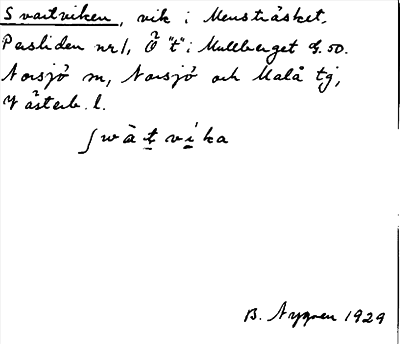 Svartviken, vik i Mensträsket,
Persliden nr 1, Ö "t" i Mullberget G. 50.
Norsjö sn, Norsjö och Malå tg,
Västerb. l.
ʃwàt̲ vi̲ka
B. Nygren 1929